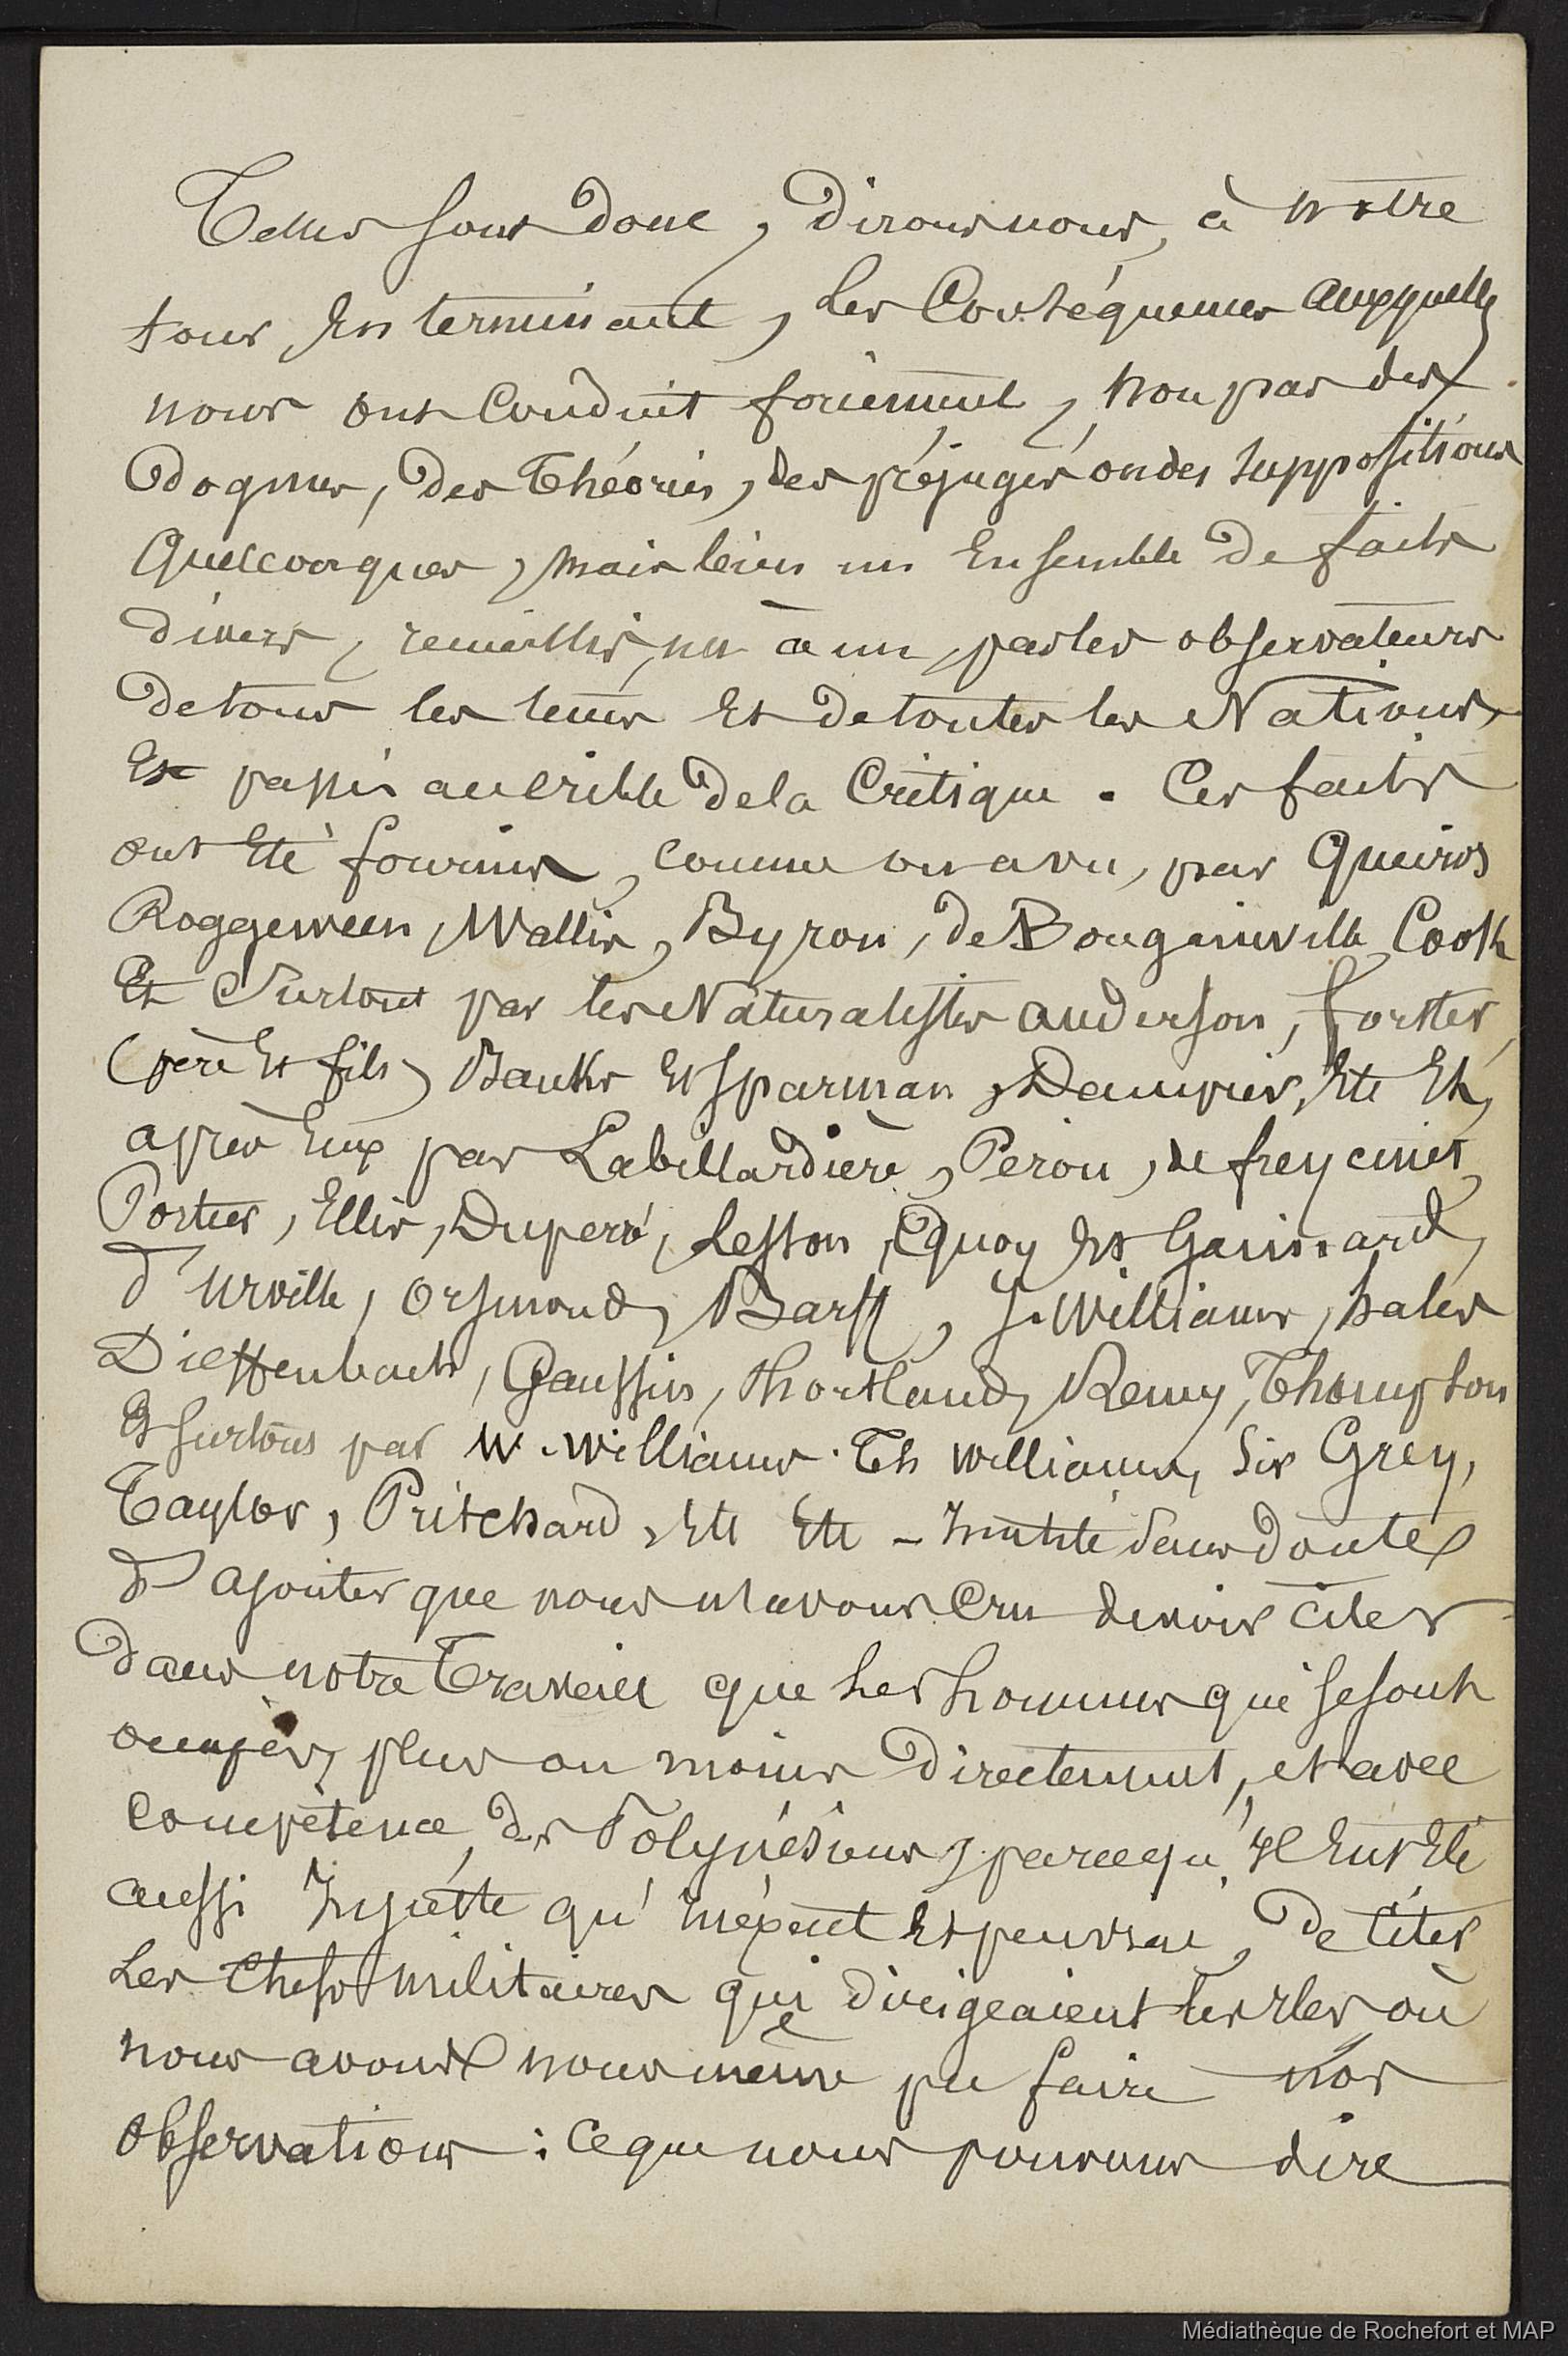 Telles sont donc, dirons nous, à notre
tour, En terminant, les Conséquences auxquelles
nous ont Conduit forcément, non pas des
Dogmes, Des Théories, des préjugés ou des suppositions
Quelconques, mais bien un Ensemble De faits
divers, recueillis, un à un, par les observateurs
De tous les temps Et de toutes les Nations,
Et passés au crible de la Critique. Ces faits
ont Eté fournis, comme on a vu, par Queiros
Roggeween, Wallis, Byron, de Bougainville, Cook
Et Surtout par les Naturalistes anderson, forster,
(père Et fils) Banks Et Sparman, Dampier, Etc Et,
après Eux par Labillardière, Péron, de freycinet,
Porter, Ellis, Duperré, Lesson, Quoy Et Gaimard,
d'Urville, Orsmond, Barff, J. Williams, hales
Dieffenbach, Gaussin, Shortland, Remy, Thompson
Et surtout par W. Williams. Th Williams, Sir Grey,
Taylor, Pritchard, Etc Etc – Inutile sans doute
d'ajouter que nous n'avons Cru devoir citer
dans notre Travail que les hommes qui se sont
occupés, plus ou moins Directement, et avec
Compétence, des Polynésiens, parcequ'il Eut Eté
aussi Injuste qu'inexact Et peu vrai, De citer
Les Chefs militaires qui dirigeaient les Iles où
nous avons nous même pu faire nos
Observations : Ce que nous pouvons dire
Médiathèque de Rochefort et MAP